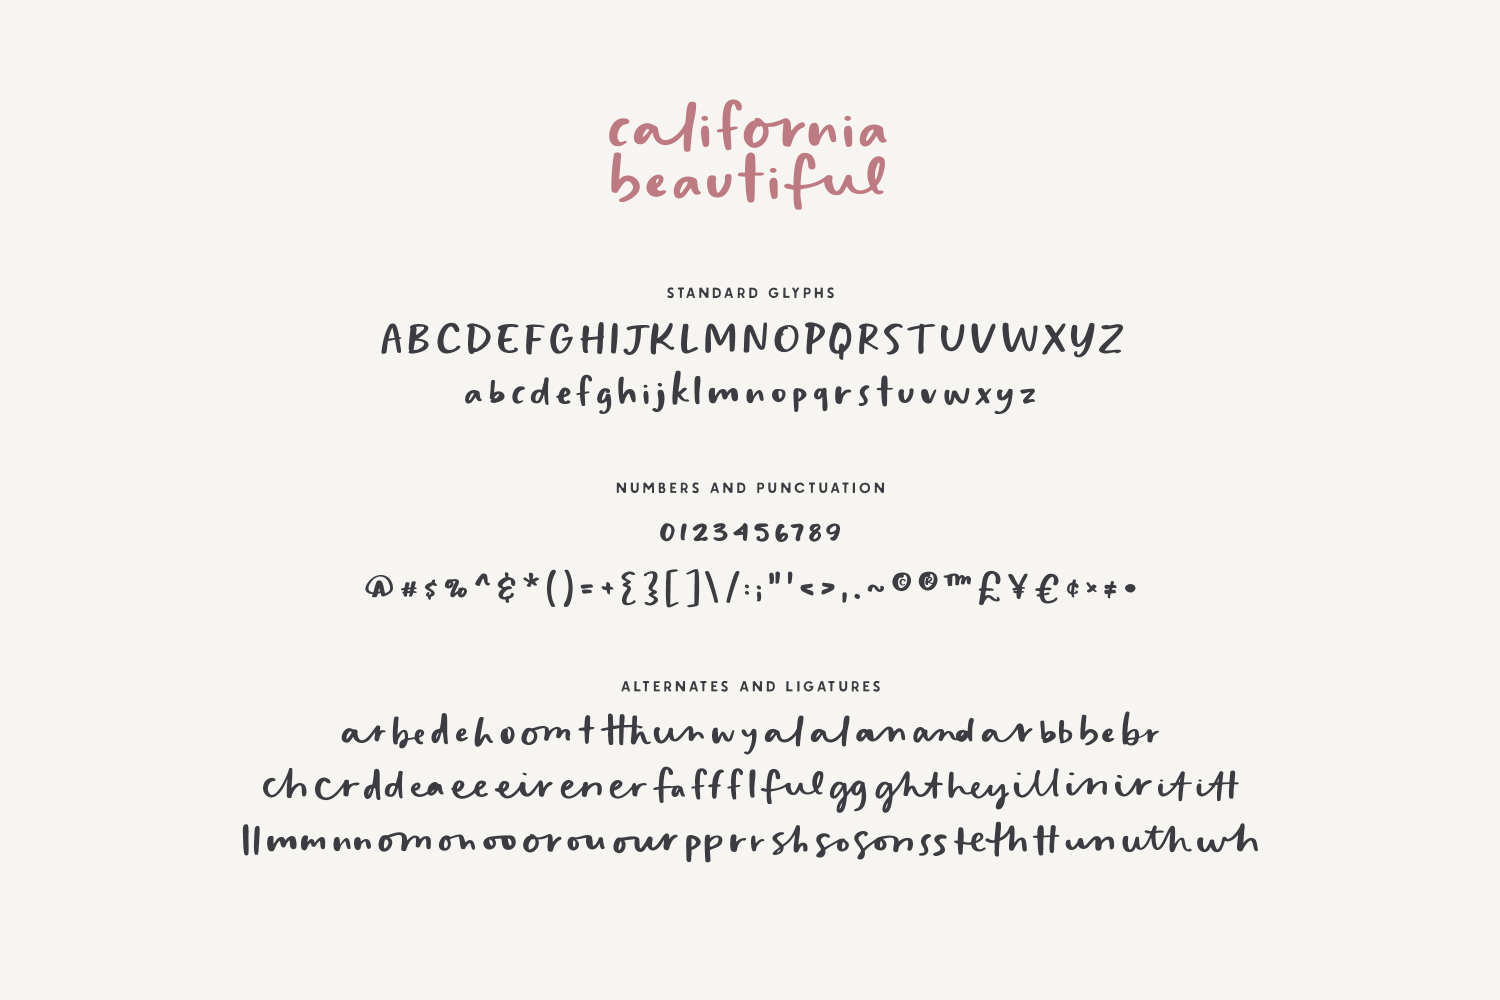 california
beautiful
STANDARD GLYPHS
ABCDEFGHIJKLMNOPQRSTUVWXYZ
abcdefghijklmnopqrstuvwxyz
NUMBERS AND PUNCTUATION
0123456789
@#$%^&*()=+{}[]\/:;"'<>,.~©®™£¥€¢×≠•
ALTERNATES AND LIGATURES
arbedehoomttthunwyalalanandarbbbebr
chcrddeaeeeirenerfaffflfulggghtheyillinirititt
llmmnnomonooorouourpprrshsosonsstefhttunuthwh